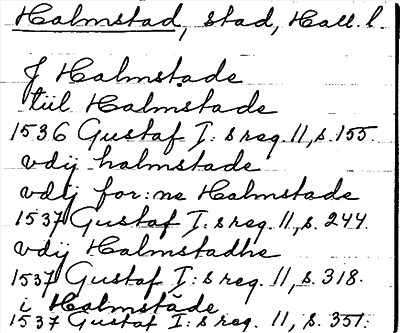 Halmstad, stad, Hall. l.
J Halmstade
tiil Halmstade
1536 Gustaf I:s reg. 11, s. 155.
vdij halmstade
vdij for:ne Halmstade
1537 Gustaf I:s reg. 11, s. 244.
vdij Halmstadhe
1537 Gustaf I:s reg. 11, s. 318.
i Halmstade
1537 Gustaf I:s reg. 11, s. 351.